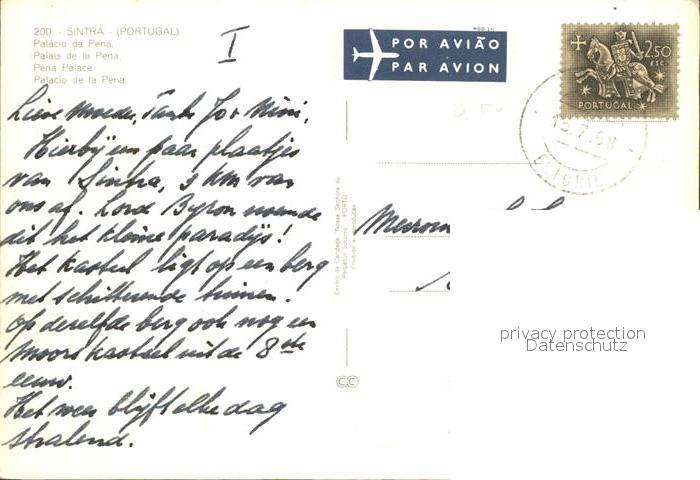 200 - SINTRA - (PORTUGAL)
Palácio da Pena.
Palais de la Pena.
Pena Palace.
Palacio de la Pena.
I
Lieve Moeder, Tante Jo & Mini,
Hierbij een paar plaatjes
van Sintra, 9 km van
ons af. Lord Byron noemde
dit het kleine paradijs!
Het kasteel ligt op een berg
met schitterende tuinen.
Op dezelfde berg ook nog een
moors kasteel uit de 8ste
eeuw.
Het weer blijft elke dag
stralend.
POR AVIÃO
PAR AVION
2$50
ESC.
PORTUGAL
ESTORIL
Centro de Caridade "Nossa Senhora do
Perpétuo Socorro" PORTO
CC
Mevrouw
privacy protection
Datenschutz